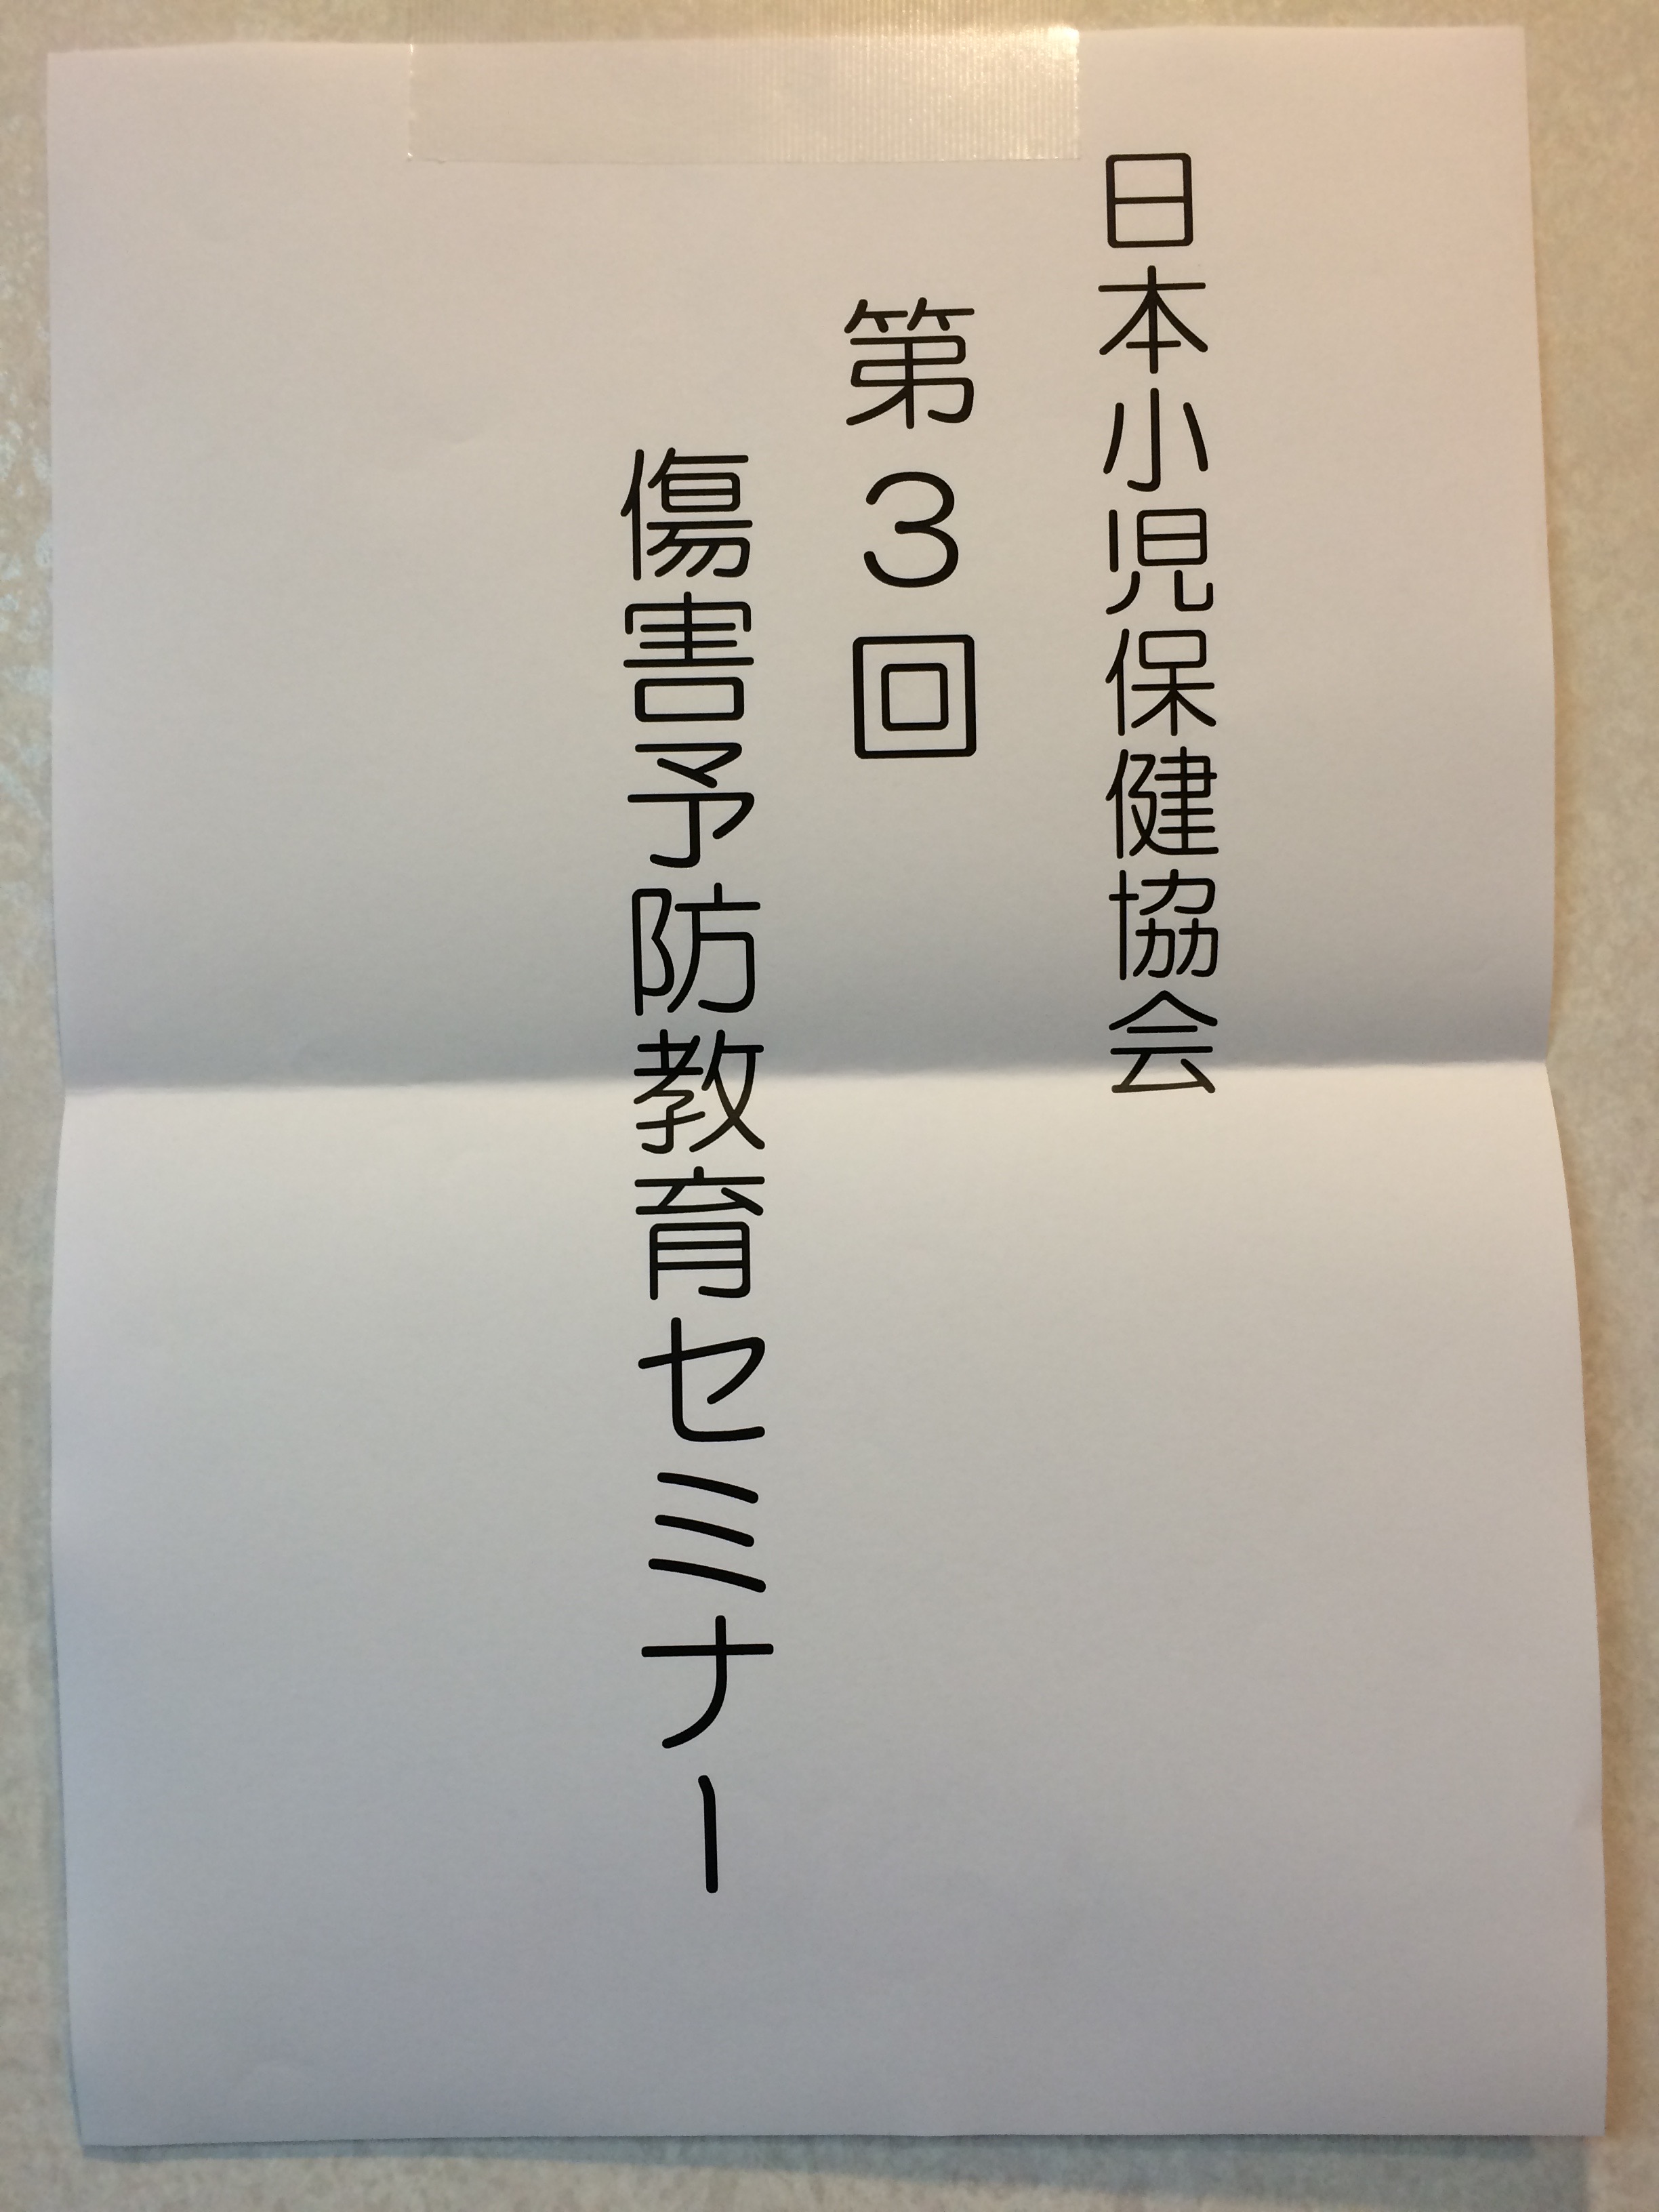 日本小児保健協会
第３回
傷害予防教育セミナー